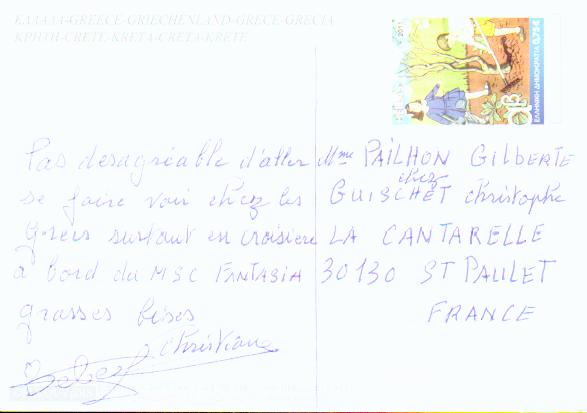 ΕΛΛΑΔΑ-GREECE-GRIECHENLAND-GRECE-GRECIA
ΚΡΗΤΗ-CRETE-KRETA-CRETA-KRETE
2011
ΕΛΛΗΝΙΚΗ ΔΗΜΟΚΡΑΤΙΑ 0,75€
Pas desagréable d'aller
se faire voir chez les
grecs surtout en croisiere
a bord du MSC FANTASIA
grosses bises
Christiane
Mme PAILHON GILBERTE
chez
GUISCHET christophe
LA CANTARELLE
30130 ST PAULET
FRANCE